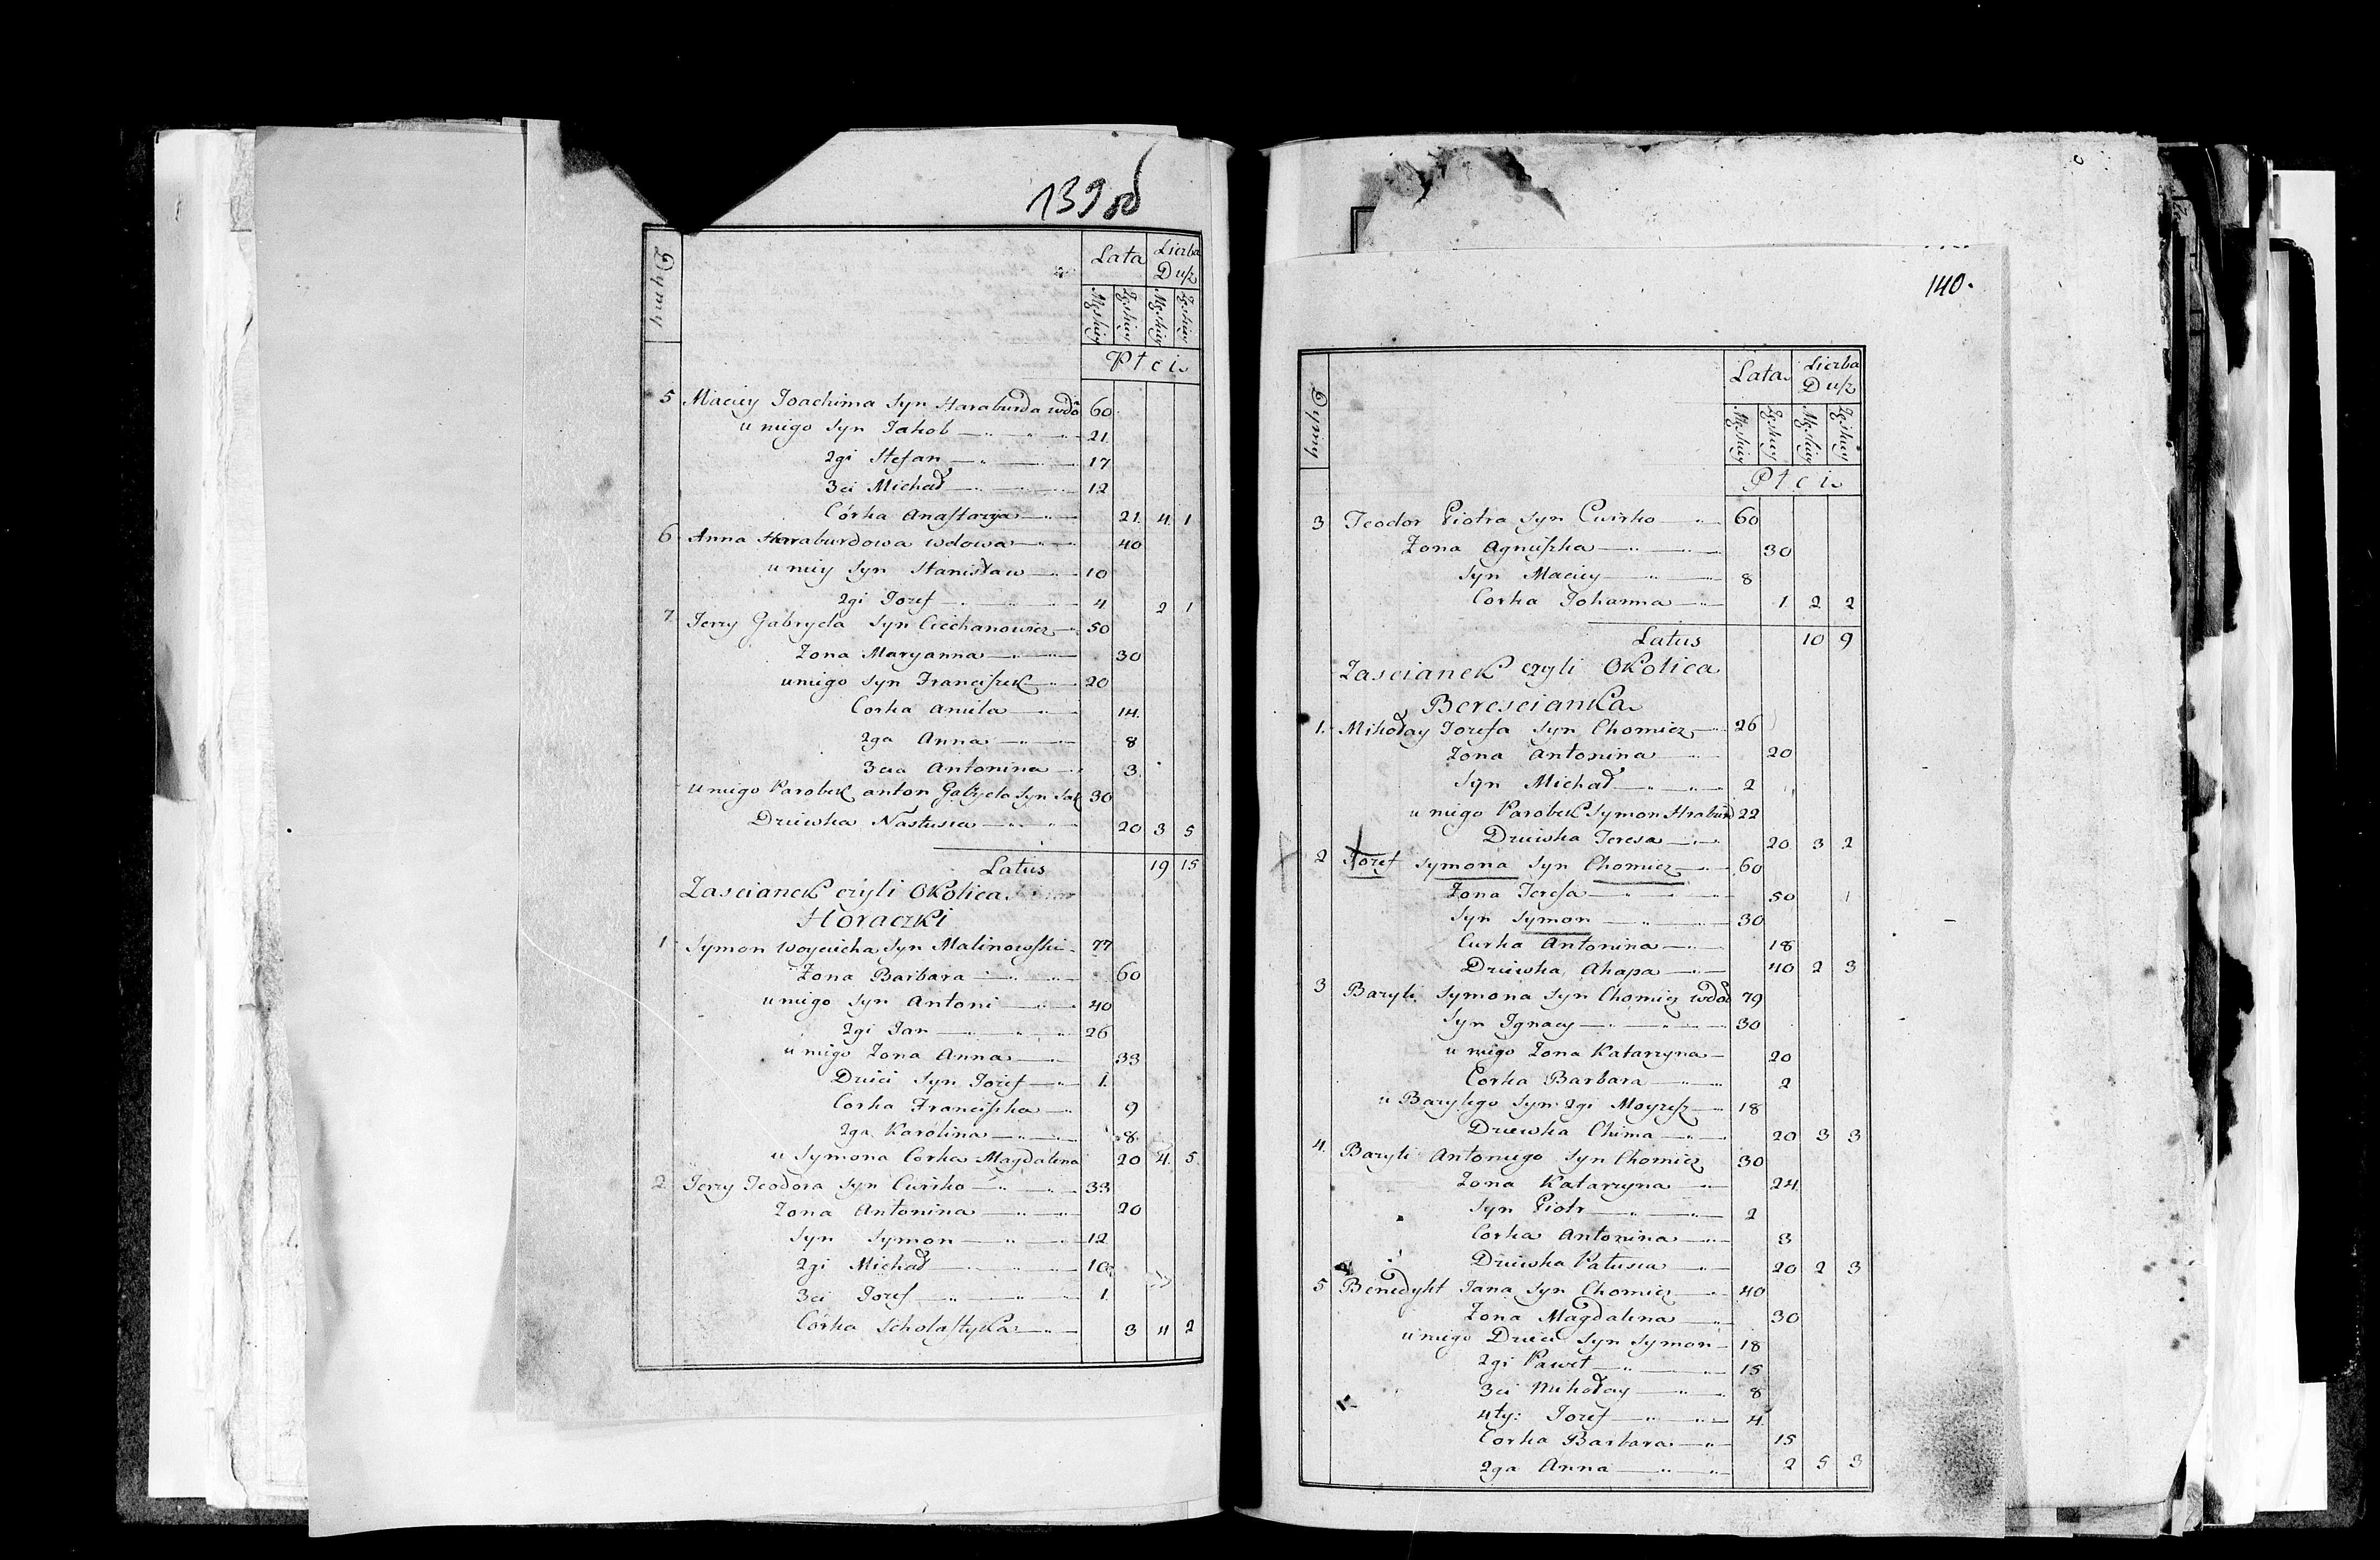 139 об
Dymy
Lata
Liczba
Dusz
Męskiey
Żęskiey
Męskiey
Żęskiey
Płci
5 Maciey Joachima Syn Haraburda wdo 60
u niego Syn Jakob 21
2gi Stefan 17
3ci Michał 12
Córka Anastazya 21 4 1
6 Anna Haraburdowa wdowa 40
u niey Syn Stanisław 10
2gi Jozef 4 2 1
7 Jerzy Gabryela Syn Ciechanowicz 50
Zona Maryanna 30
u niego Syn Franciszek 20
Corka Aniela 14
2ga Anna 8
3cia Antonina 3
u niego Parobek anton Gabryela Syn 30
Dziewka Nastusia 20 3 5
Latus 19 15
Zascianek czyli Okolica
Horaczki
1 Symon Woyciecha Syn Malinowski 77
Zona Barbara 60
u niego Syn Antoni 40
2gi Jan 26
u niego Zona Anna 33
Dzieci Syn Jozef 1
Corka Franciszka 9
2ga Karolina 8
u Symona Corka Magdalena 20 4 5
2 Jerzy Teodora Syn Cwirko 33
Zona Antonina 20
Syn Symon 12
2gi Michał 10
3ci Jozef 1
Córka Scholastyka 3 4 2
140.
Dymy
Lata
Liczba
Dusz
Męskiey
Żęskiey
Męskiey
Żęskiey
Płci
3 Teodor Piotra Syn Cwirko 60
Zona Agnieszka 30
Syn Maciey 8
Corka Johanna 1 2 2
Latus 10 9
Zascianek czyli Okolica
Berescianka
1. Mikołay Jozefa Syn Chomicz 26
Zona Antonina 20
Syn Michał 2
u niego Parobek Symon Hraburd 22
Dziewka Teresa 20 3 2
2 Jozef Symona Syn Chomicz 60
Zona Teresa 50
Syn Symon 30
Curka Antonina 18
Dziewka Ahapa 40 2 3
3 Bazyli Symona Syn Chomicz wdo 79
Syn Ignacy 30
u niego Zona Katarzyna 20
Corka Barbara 2
u Bazylego Syn 2gi Moyzesz 18
Dziewka Chima 20 3 3
4. Bazyli Antoniego Syn Chomicz 30
Zona Katarzyna 24
Syn Piotr 2
Corka Antonina 3
Dziewka Katusia 20 2 3
5 Benedykt Jana Syn Chomicz 40
Zona Magdalena 30
u niego Dzieci Syn Symon 18
2gi Paweł 15
3ci Mikołay 8
4ty: Jozef 4
Corka Barbara 15
2ga Anna 2 5 3